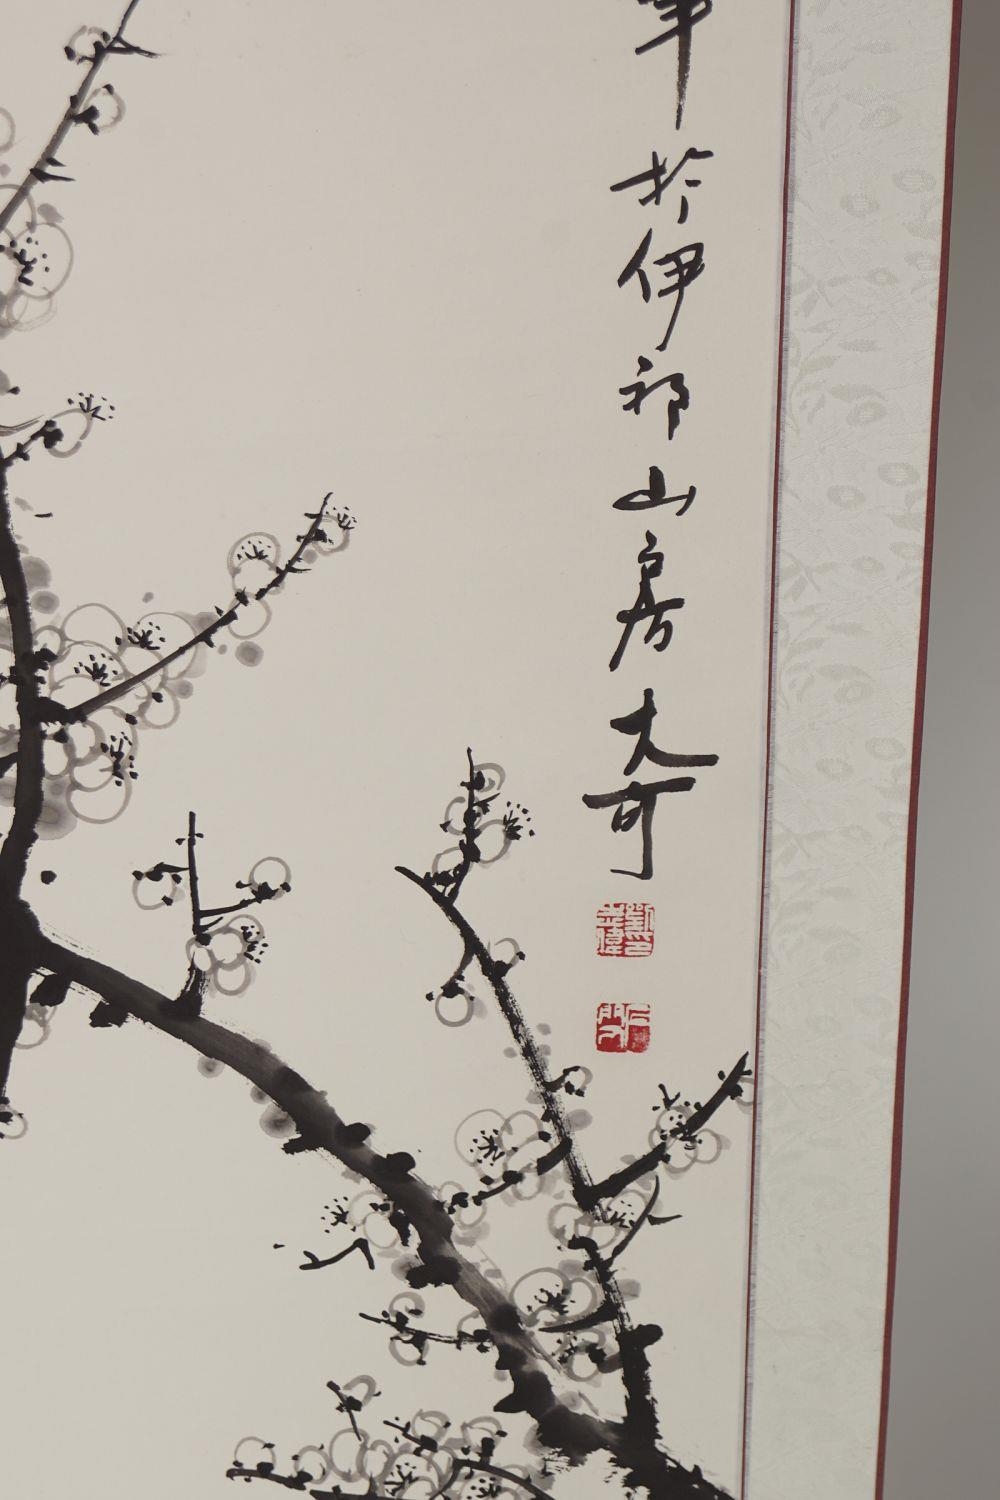 於伊祁山房大可